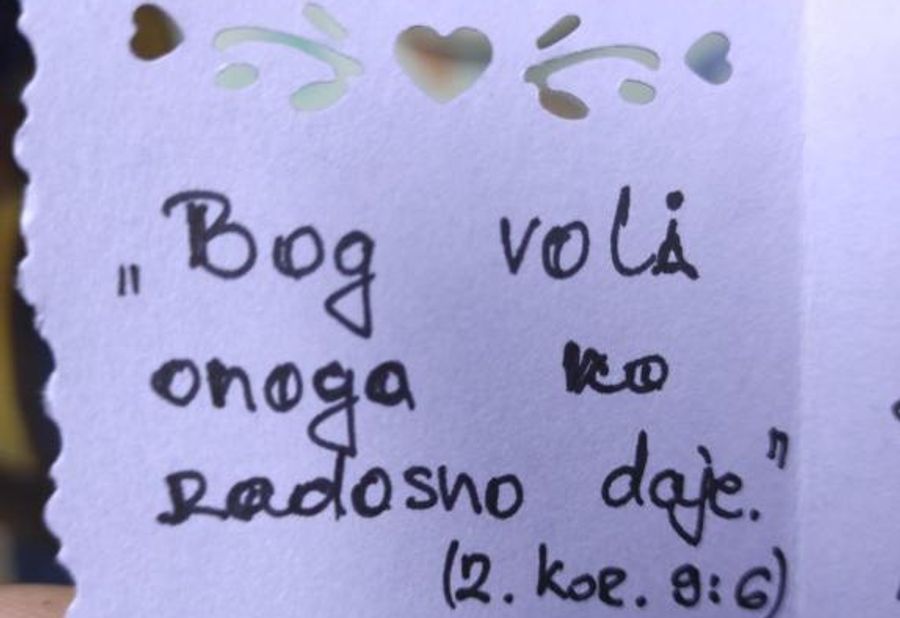 „Bog voli
onoga ko
radosno daje."
(2. kor. 9:6)